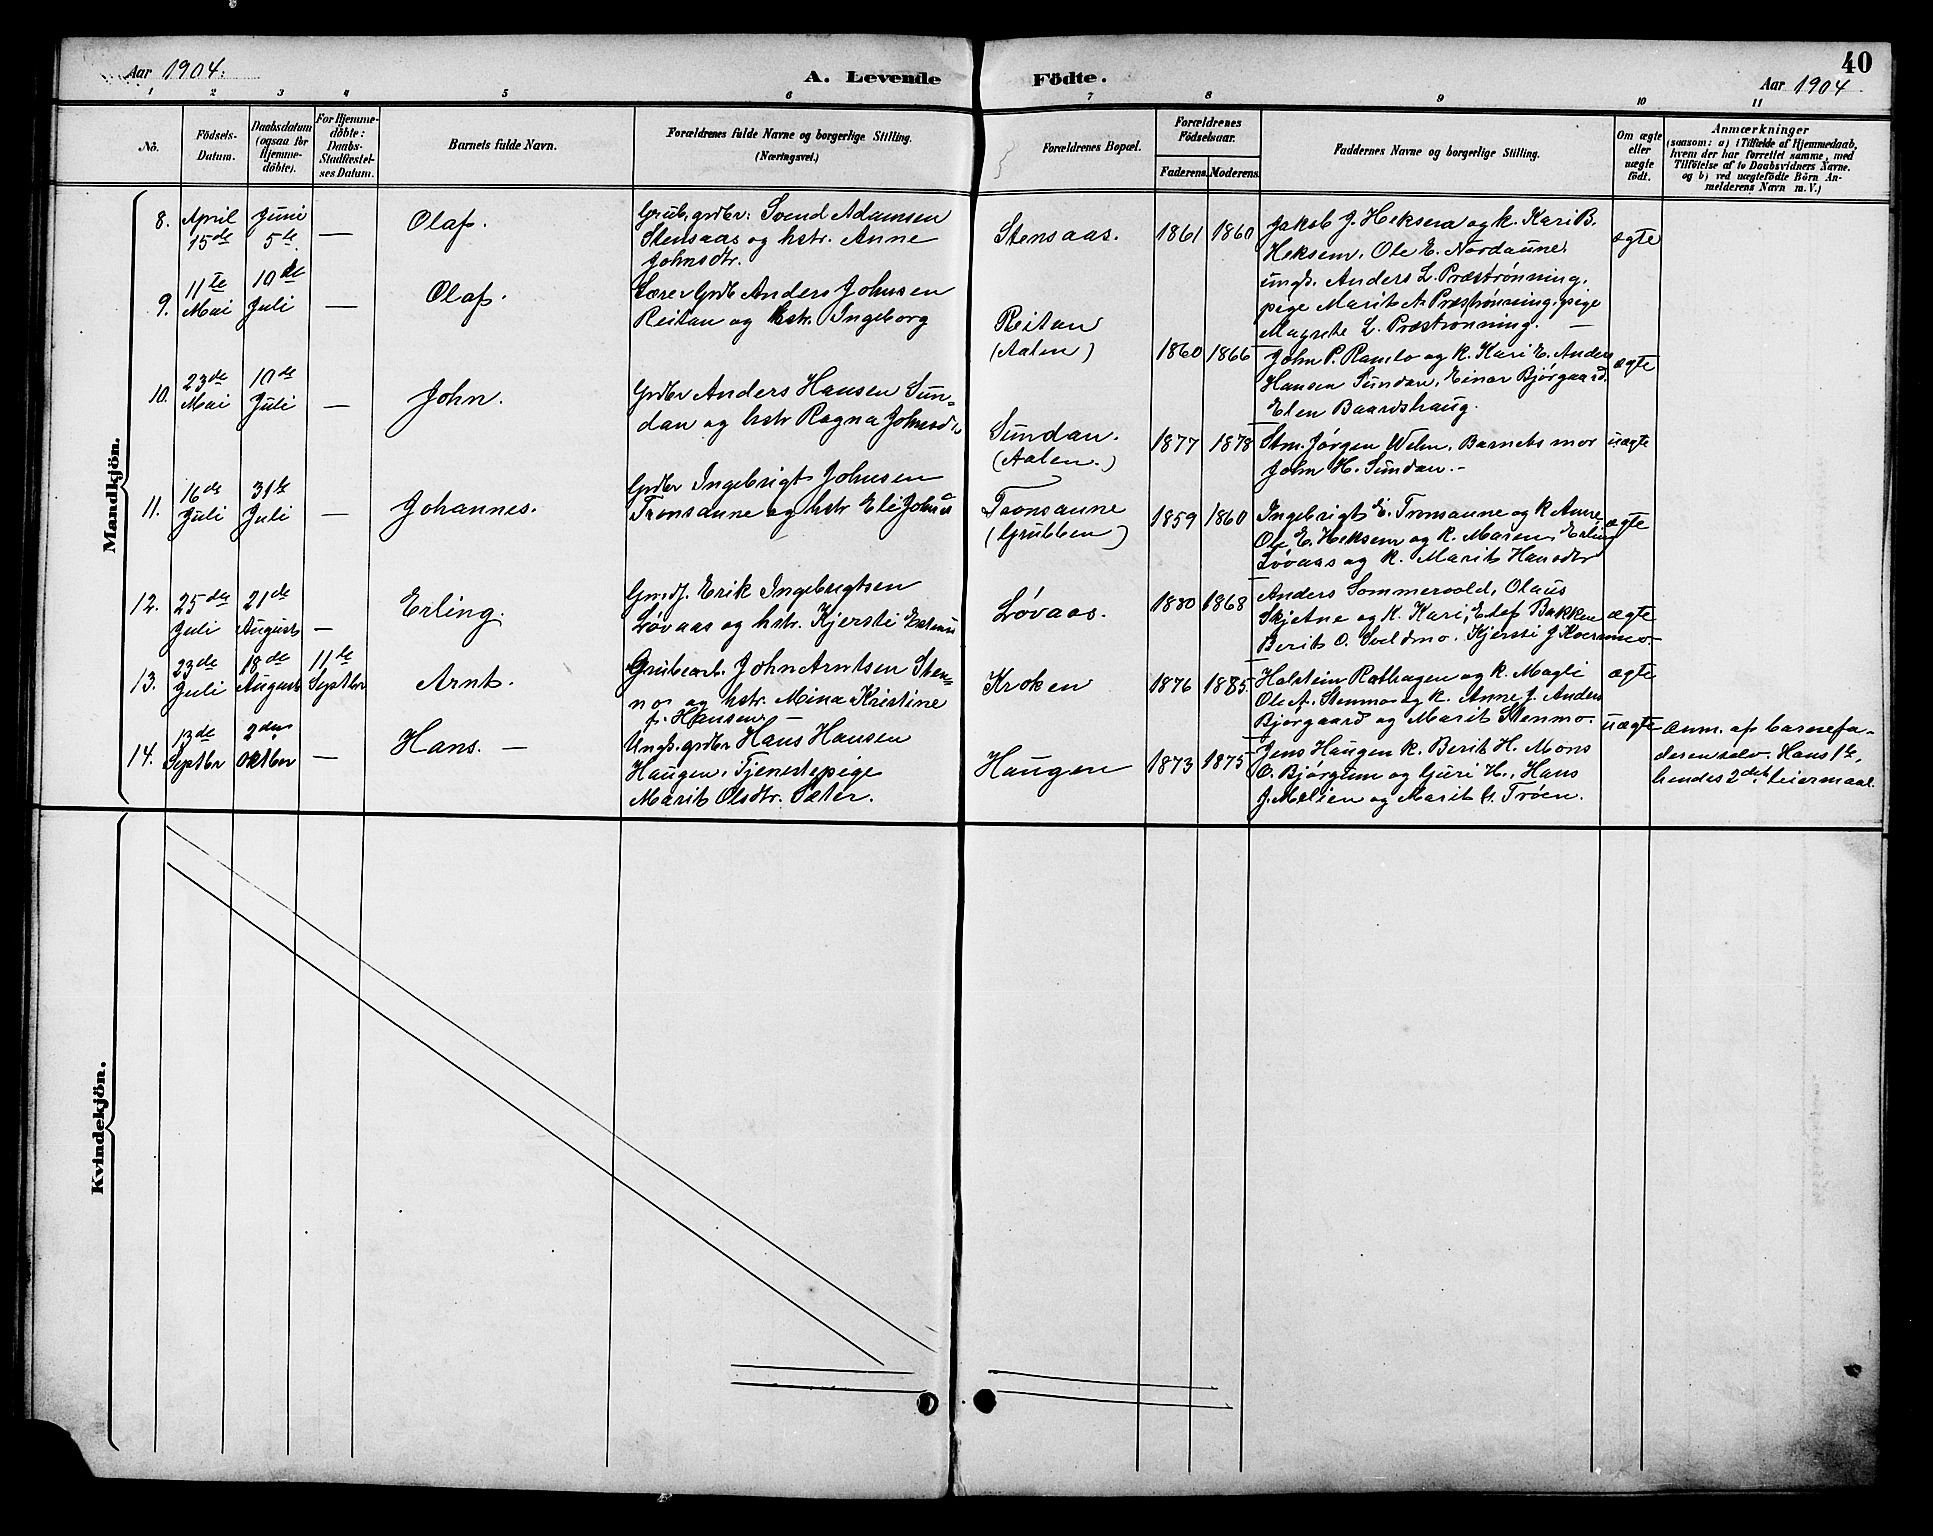 Aar 1904.
A. Levende Födte.
40
Aar 1904
1 2 3 4 5 6 7 8 9 10 11
No.
Födsels-
Datum.
Daabsdatum
(ogsaa for
Hjemme-
döbte).
For Hjemme-
döbte:
Daabs-
Stadfæstel-
ses Datum.
Barnets fulde Navn.
Forældrenes fulde Navne og borgerlige Stilling.
(Næringsvei.)
Forældrenes Bopæl.
Forældrenes
Födselsaar.
Faderens. Moderens.
Faddernes Navne og borgerlige Stilling.
Om ægte
eller
uægte
födt.
Anmærkninger
(saasom: a) i Tilfælde af Hjemmedaab,
hvem der har forrettet samme, med
Tilföielse af to Daabsvidners Navne.
og b) ved uægtefödte Börn An-
melderens Navn m. V.)
Mandkjön.
8.
April
15de
Juni
5te
—
Olaf.
Grub. grdbr: Svend Adamsen
Stensaas og hstr. Anne
Johnsdtr.
Stensaas.
1861 1860
Jakob J. Heksem og k. Kari B.
Heksem, Ole E. Nordaune.
ungk. Anders L. Præstrønning,
pige Marit A. Præstrønning, pige
Magrete L. Præstrønning. —
ægte
9.
11te
Mai
10de
Juli
—
Olaf.
Lærer Grdb Anders Johnsen
Reitan og hstr. Ingeborg
Reitan
(Aalen)
1860 1866
John P. Ramlo og k. Kari E. Anders
Hansen Sundan, Einar Bjørgaard.
Elen Baardshaug.
ægte
10.
23de
Mai
10de
Juli
—
John.
Grdbr Anders Hansen Sun-
dan og hstr Ragna Johnsdtr
Sundan.
(Aalen.)
1877 1878
Stm. Jørgen Welm. Barnets mor
John H. Sundan. -
uægte
11.
16de
Juli
31te
Juli
—
Johannes.
Grdbr Ingebrigt Johnsen
Tronsaune og hstr Eli Johns
Tronsaune
(Grubben)
1859 1860
Ingebrigt E. Tronsaune og k Anne,
Ole E. Heksem og k. Maren, Erling
Løvaas og k. Marit Hansdtr
ægte
12.
25de
Juli
21de
August
—
Erling.
Grdf. Erik Ingebrigtsen
Løvaas og hstr. Kjersti
Løvaas.
1880 1868
Anders Sommervold, Olaus
Skjetne og k. Kari, Bakken
Berit O. Sveldmo. Kjersti J Kvernmo-
ægte
13.
23de
Juli
18de
August
11te
Septbr
Arnt.
Grubearb. John Arntsen Sten-
mo og hstr. Mina Kristine
f. Hansen. —
Kroken
1876 1885
Halstein Rathagen og k. Magli
Ole f. Stenmo og k. Anne J. Anders
Bjørgaard og Marit Stenmo.
ægte
14.
13de
Septbr
2den
Oktbr
—
Hans. —
Ungk. grdbr Hans Hansen
Haugen. Tjenestepige
Marit Olsdtr. Sæter.
Haugen
1873 1875
Jens Haugen k. Berit H. Mons
O. Bjørgum og Guri H., Hans
J. Mælien og Marit H. Trøen.
uægte
anm. af barnefa-
deren selv. Hans 1te,
hendes 2det leiermaal
Kvindekjön.